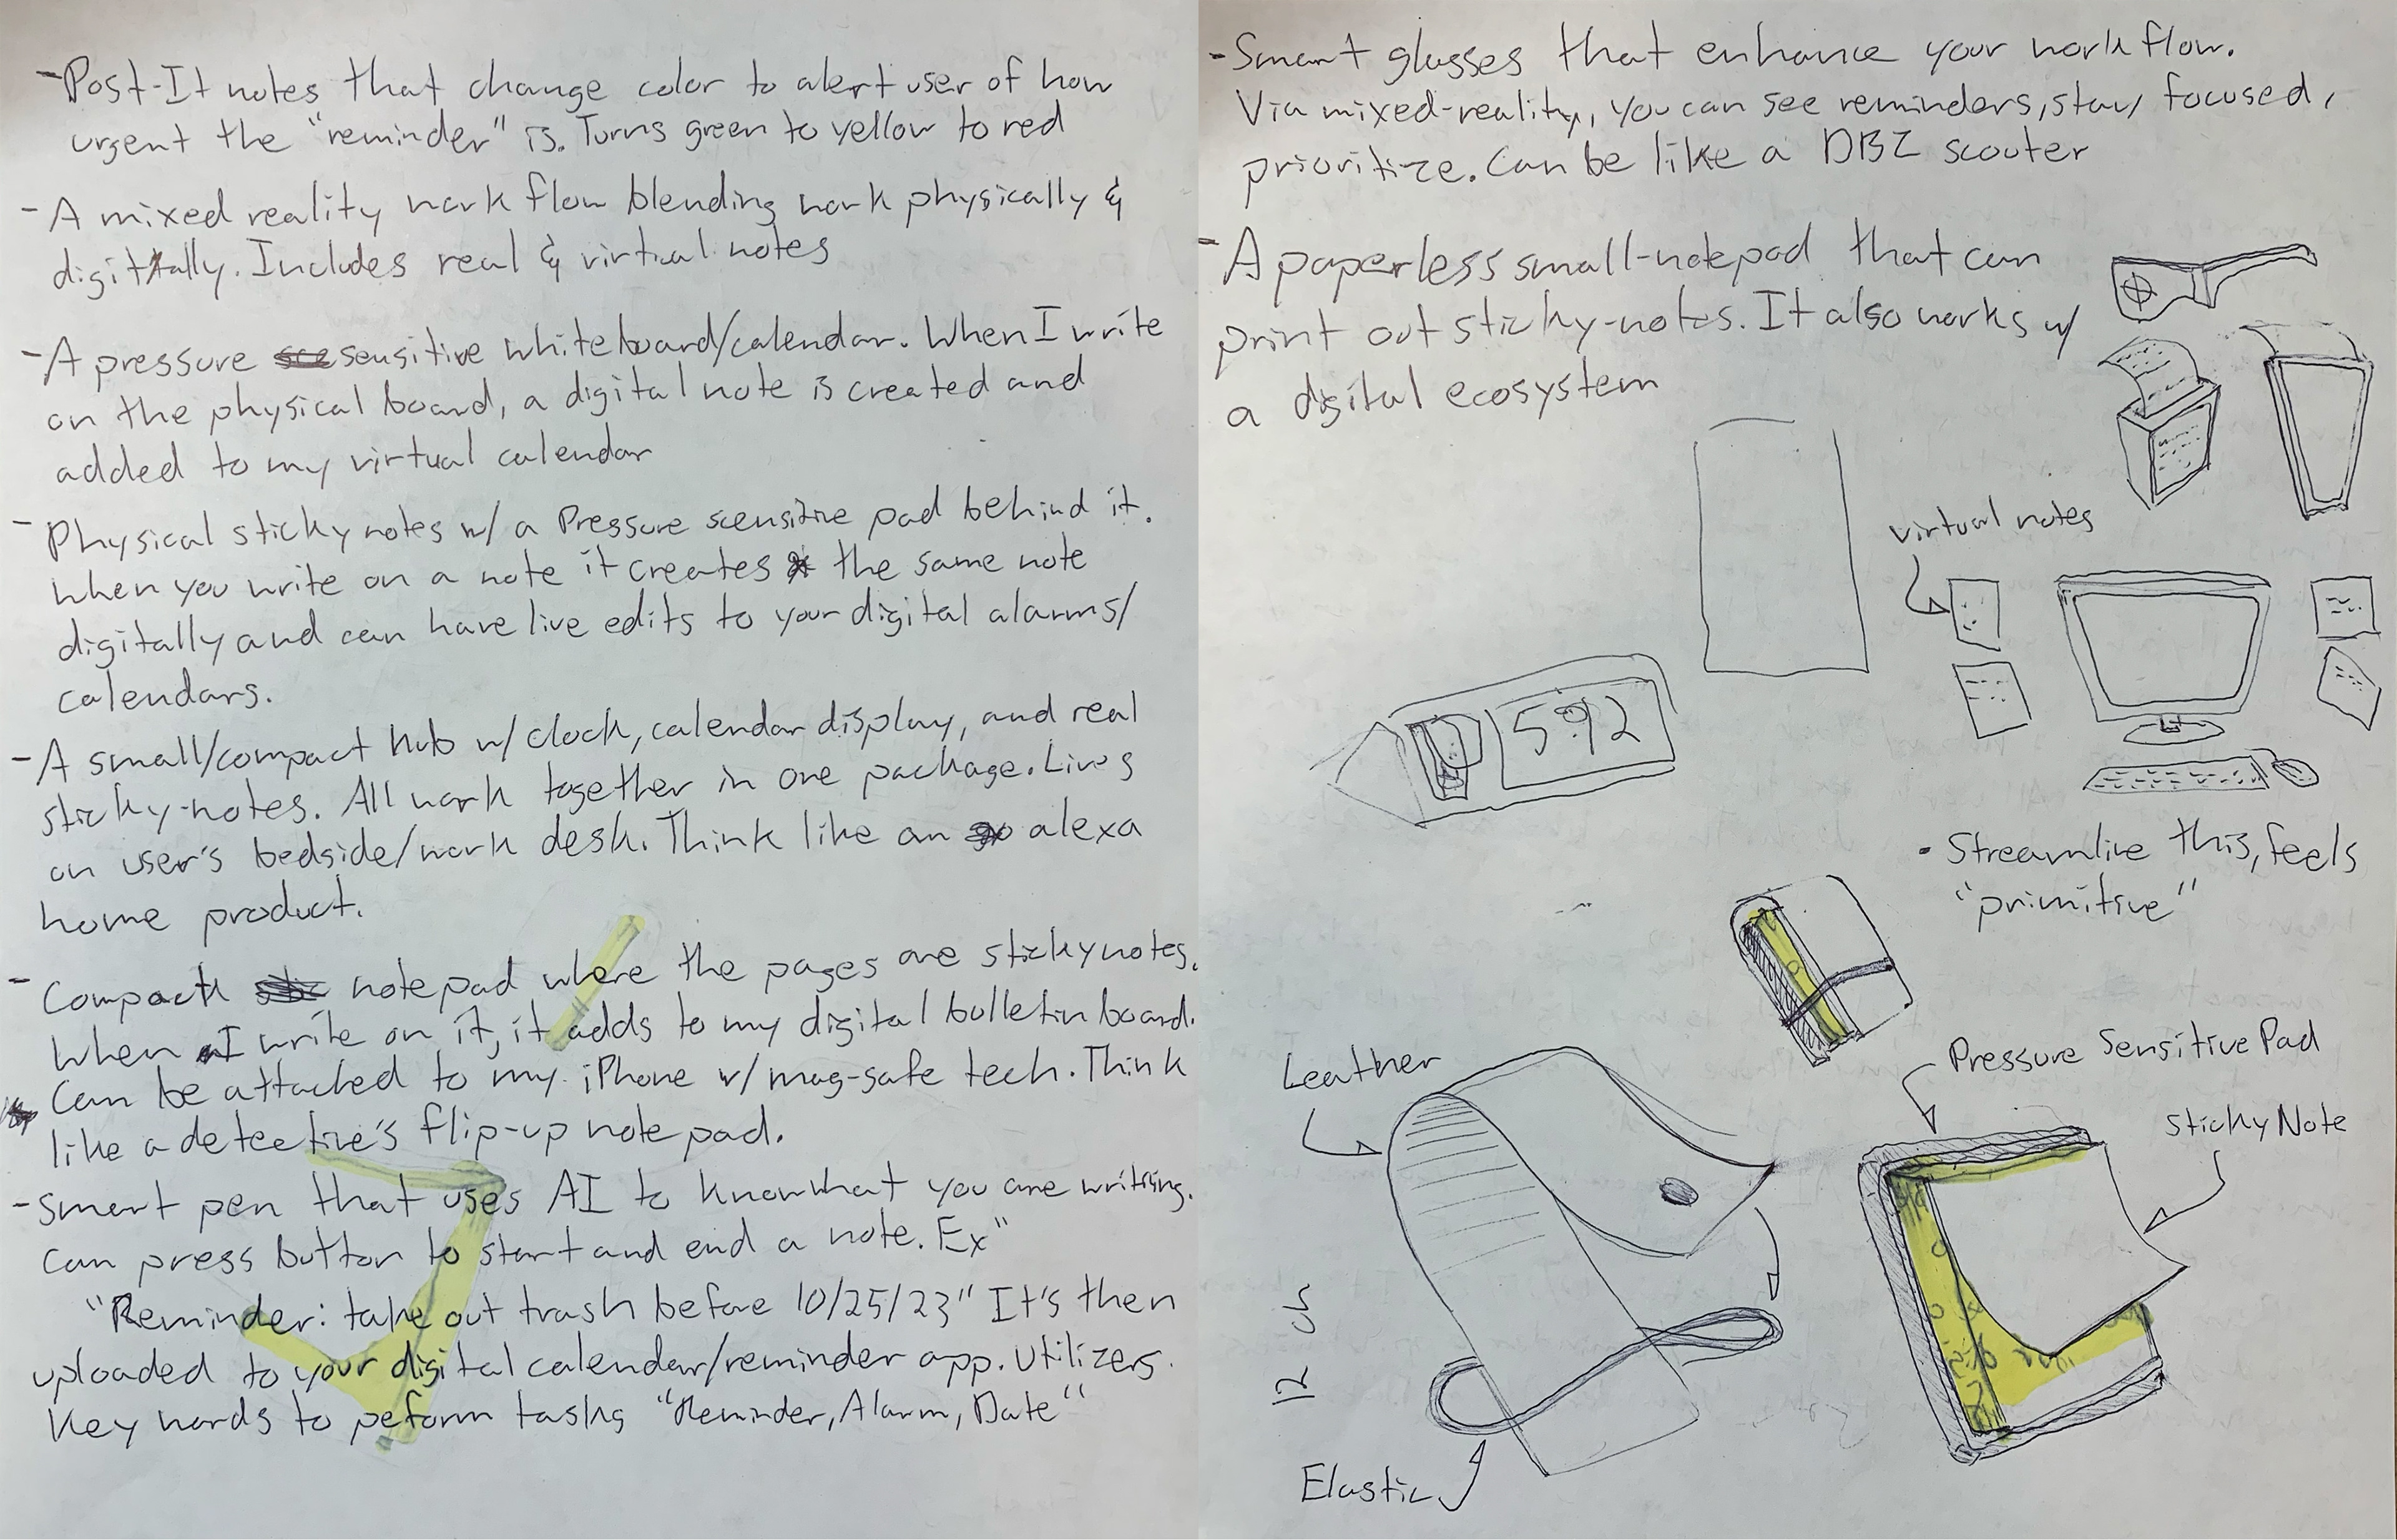 -Post-It notes that change color to alert user of how
urgent the "reminder" is. Turns green to yellow to red
- A mixed reality work flow blending work physically &
digitally. Includes real & virtual notes
- A pressure sensitive whiteboard/calendar. When I write
on the physical board, a digital note is created and
added to my virtual calendar
- Physical sticky notes w/ a Pressure scensitive pad behind it.
When you write on a note it creates the same note
digitally and can have live edits to your digital alarms/
calendars.
- A small/compact hub w/ clock, calendar display, and real
sticky-notes. All work together in one package. Lives
on user's bedside/work desk. Think like an alexa
home product.
- Compact notepad where the pages are stickynotes.
When I write on it, it adds to my digital bulletin board.
Can be attached to my iPhone w/ mag-safe tech. Think
like a detective's flip-up notepad.
- Smart pen that uses AI to know what you are writing.
Can press button to start and end a note. Ex"
"Reminder: take out trash before 10/25/23" It's then
uploaded to your digital calendar/reminder app. Utilizers
Key words to peform tasks "Reminder, Alarm, Date"
- Smart glasses that enhance your work flow.
Via mixed-reality, you can see reminders, stay focused,
prioritize. Can be like a DBZ scouter
- A paperless small-notepad that can
print out sticky-notes. It also works w/
a digital ecosystem
virtual notes
592
- Streamline this, feels
"primitive"
Leather
Pressure Sensitive Pad
Sticky Note
Elastic